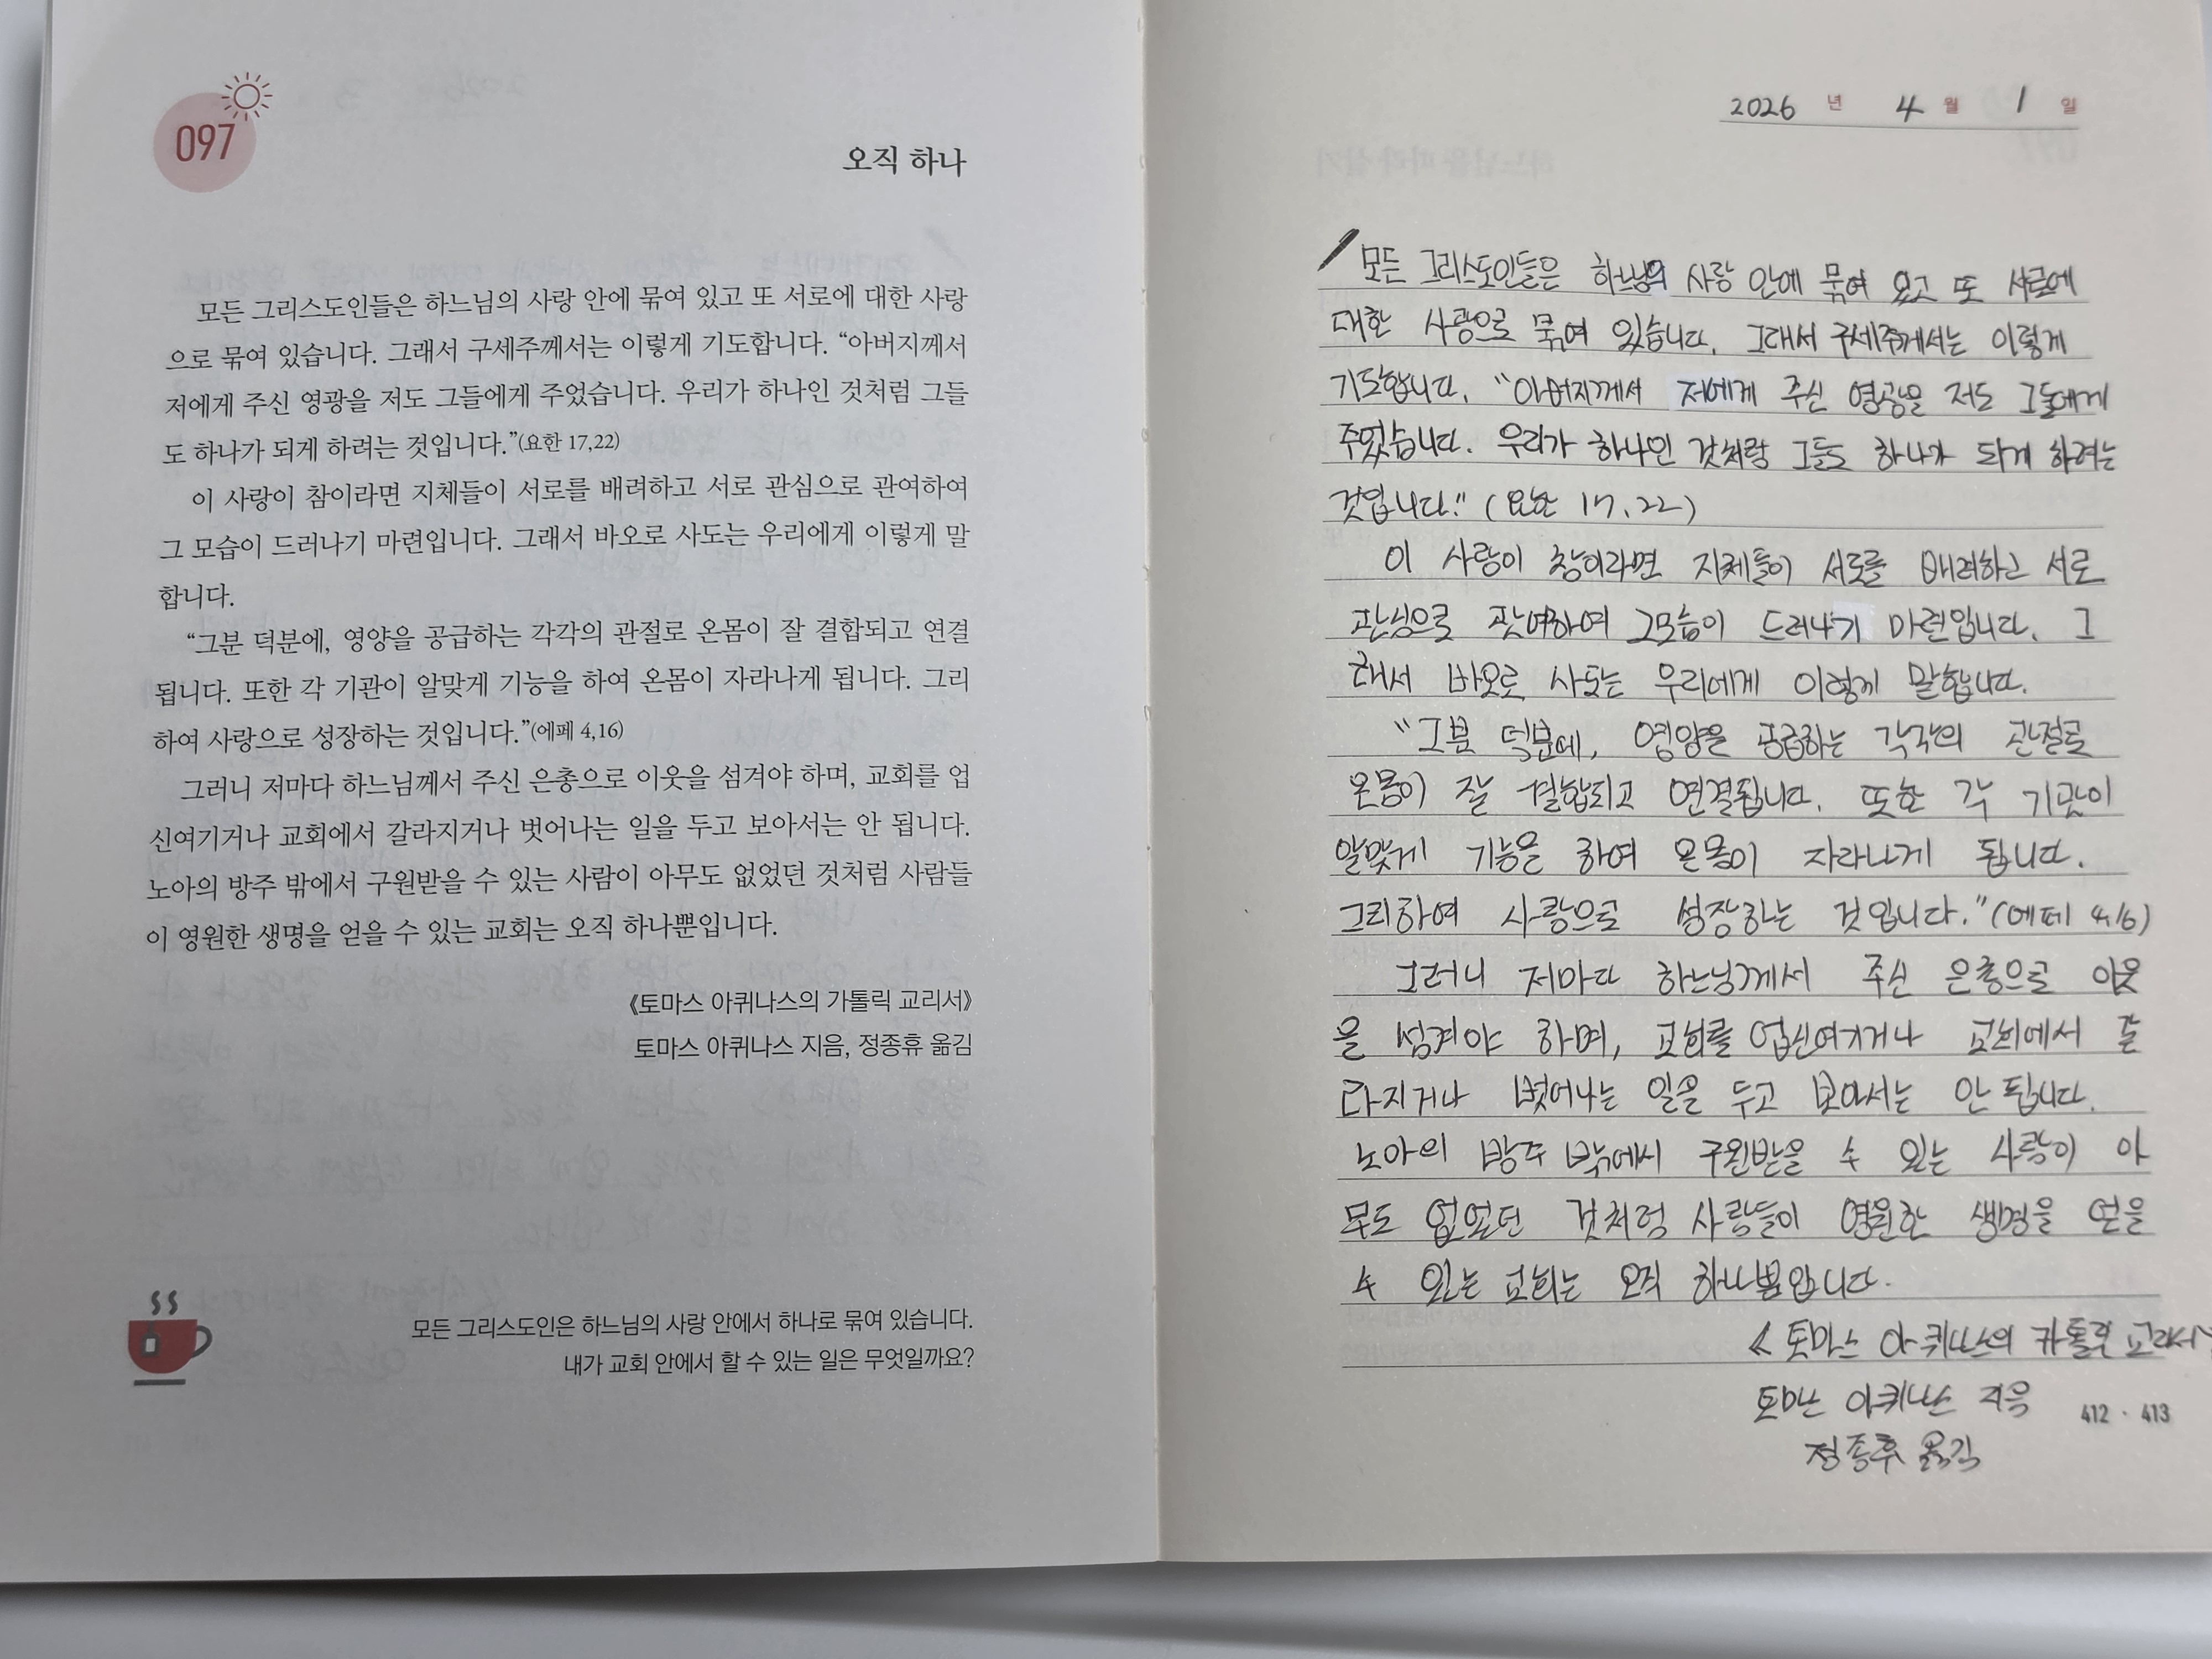 097
오직 하나
모든 그리스도인들은 하느님의 사랑 안에 묶여 있고 또 서로에 대한 사랑
으로 묶여 있습니다. 그래서 구세주께서는 이렇게 기도합니다. “아버지께서
저에게 주신 영광을 저도 그들에게 주었습니다. 우리가 하나인 것처럼 그들
도 하나가 되게 하려는 것입니다.”(요한 17,22)
이 사랑이 참이라면 지체들이 서로를 배려하고 서로 관심으로 관여하여
그 모습이 드러나기 마련입니다. 그래서 바오로 사도는 우리에게 이렇게 말
합니다.
“그분 덕분에, 영양을 공급하는 각각의 관절로 온몸이 잘 결합되고 연결
됩니다. 또한 각 기관이 알맞게 기능을 하여 온몸이 자라나게 됩니다. 그리
하여 사랑으로 성장하는 것입니다.”(에페 4,16)
그러니 저마다 하느님께서 주신 은총으로 이웃을 섬겨야 하며, 교회를 업
신여기거나 교회에서 갈라지거나 벗어나는 일을 두고 보아서는 안 됩니다.
노아의 방주 밖에서 구원받을 수 있는 사람이 아무도 없었던 것처럼 사람들
이 영원한 생명을 얻을 수 있는 교회는 오직 하나뿐입니다.
《토마스 아퀴나스의 가톨릭 교리서》
토마스 아퀴나스 지음, 정종휴 옮김
모든 그리스도인은 하느님의 사랑 안에서 하나로 묶여 있습니다.
내가 교회 안에서 할 수 있는 일은 무엇일까요?
2026 년 4 월 1 일
모든 그리스도인들은 하느님의 사랑 안에 묶여 있고 또 서로에
대한 사랑으로 묶여 있습니다. 그래서 구세주께서는 이렇게
기도합니다. “아버지께서 저에게 주신 영광을 저도 그들에게
주었습니다. 우리가 하나인 것처럼 그들도 하나가 되게 하려는
것입니다." (요한 17,22)
이 사랑이 참이라면 지체들이 서로를 배려하고 서로
관심으로 관여하여 그모습이 드러나기 마련입니다. 그
래서 바오로 사도는 우리에게 이렇게 말합니다.
“그분 덕분에, 영양을 공급하는 각각의 관절로
온몸이 잘 결합되고 연결됩니다. 또한 각 기관이
알맞게 기능을 하여 온몸이 자라나게 됩니다.
그리하여 사랑으로 성장하는 것입니다."(에페 4,16)
그러니 저마다 하느님께서 주신 은총으로 이웃
을 섬겨야 하며, 교회를 업신여기거나 교회에서 갈
라지거나 벗어나는 일을 두고 보아서는 안 됩니다.
노아의 방주 밖에서 구원받을 수 있는 사람이 아
무도 없었던 것처럼 사람들이 영원한 생명을 얻을
수 있는 교회는 오직 하나뿐입니다.
< 토마스 아퀴나스의 카톨릭 교리서>
토마스 아퀴나스 지음
412 · 413
정종휴 옮김